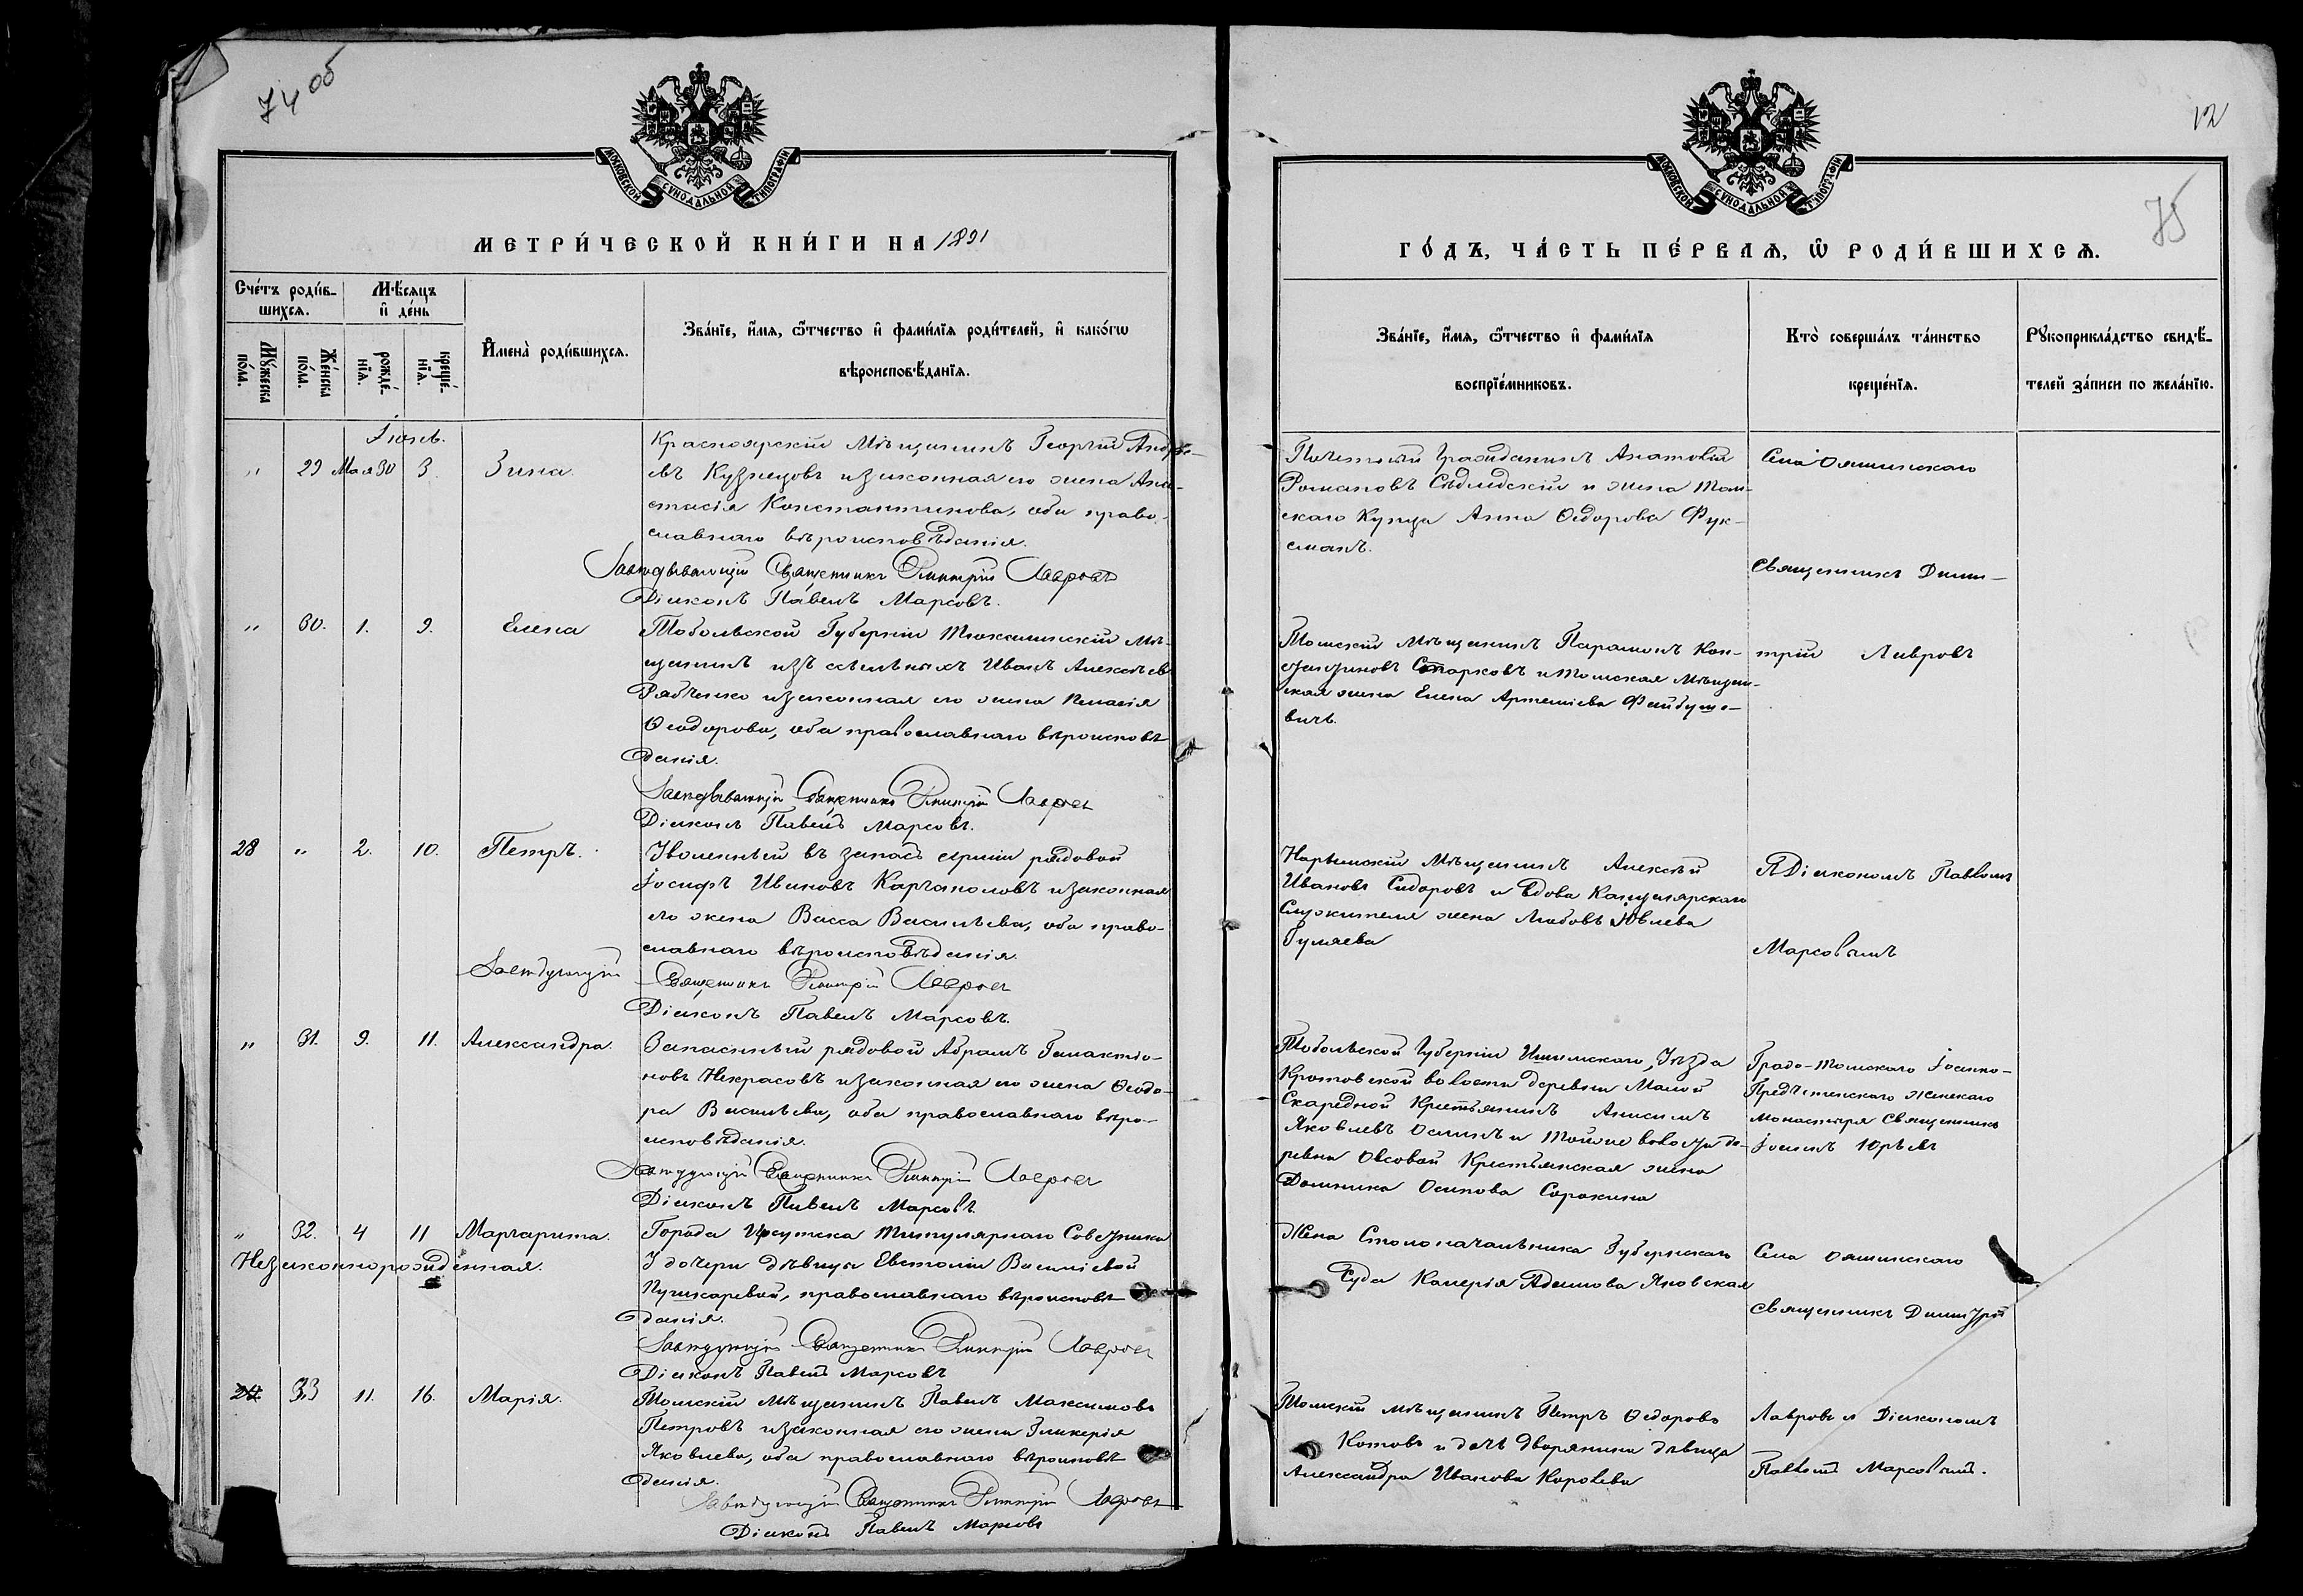 74 об
МОСКОВСКОЙ СѴНОДАЛЬНОЙ ТИПОГРАФІИ
МЕТРИ́ЧЕСКОЙ КНИ́ГИ НА 1891
Сче́тъ роди́в-
шихсѧ.
Мꙋ́жеска по́ла.
Же́нска по́ла.
Мѣ́сѧцъ и҆ де́нь
рожде́-нїѧ.
креще́-нїѧ.
И҆мена̀ роди́вшихсѧ.
Зва́нїе, и҆́мѧ, ѻ҆́тчество и҆ фами́лїѧ роди́телей, и҆ како́гѡ
вѣроисповѣ́данїѧ.
Іюнь.
" 29 Мая 30 3. Зина.
Красноярскій Мѣщанинъ Георгій Андрѣе-
въ Кузнецовъ и законная его жена Ана-
стасія Константинова, оба право-
славнаго вѣроисповѣданія.
Завѣдывающій Священникъ Димитрій Лавровъ
Діаконъ Павелъ Марсовъ.
" 30. 1. 9. Елена
Тобольской Губерніи Тюкалинскій Мѣ-
щанинъ изъ ссыльныхъ Иванъ Алексѣевъ
Рябченко и законная его жена Пелагія
Ѳеодорова, оба православнаго вѣроисповѣ
данія.
Завѣдывающій Священникъ Димитрій Лавровъ
Діаконъ Павелъ Марсовъ.
28 " 2. 10. Петръ.
Уволенный въ запасъ арміи рядовой
Іосифъ Ивановъ Карчаполовъ и законная
его жена Васса Васильева, оба право-
славнаго вѣроисповѣданія.
Завѣдующій Священникъ Димитрій Лавровъ
Діаконъ Павелъ Марсовъ.
" 31. 9. 11. Александра.
Запасный рядовой Абрамъ Галактіо-
новъ Некрасовъ и законная его жена Ѳеодо-
ра Васильева, оба православнаго вѣро-
исповѣданія.
Завѣдующій Священникъ Димитрій Лавровъ
Діаконъ Павелъ Марсовъ.
" 32. 4 11 Маргарита.
Незаконнорожденная.
Города Иркутска Титулярнаго Совѣтника
у дочери дѣвицы Евстоліи Васильевой
Пушкаревой, православнаго вѣроисповѣ
данія.
Завѣдующій Священникъ Димитрій Лавровъ
Діаконъ Павелъ Марсовъ
33 11. 16. Марія.
Томскій Мѣщанинъ Павелъ Максимовъ
Петровъ и законная его жена Гликерія
Яковлева, оба православнаго вѣроисповѣ
данія.
Завѣдующій Священникъ Димитрій Лавровъ
Діаконъ Павелъ Марсовъ
12
75
МОСКОВСКОЙ СѴНОДАЛЬНОЙ ТИПОГРАФІИ
ГО́ДЪ, ЧА́СТЬ ПЕ́РВАѦ, Ѡ҆ РОДИ́ВШИХСѦ.
Зва́нїе, и҆́мѧ, ѻ҆́тчество и҆ фами́лїѧ
воспрїе́мниковъ.
Кто̀ соверша́лъ та́инство
креще́нїѧ.
Рꙋкоприкла́дство свидѣ́-
телей за́писи по жела́нїю.
Почетный Гражданинъ Анатолій
Романовъ Сѣдлецкій и жена Том-
скаго Купца Анна Ѳедорова Фук-
сманъ.
Села Ояшинскаго
Священникъ Дими-
Томскій Мѣщанинъ Парамонъ Кон-
Старковъ и Томская Мѣщан-
ская жена Елена Артеміева Фейбуше-
вичъ.
трій Лавровъ
Нарымскій Мѣщанинъ Алексѣй
Ивановъ Сидоровъ и вдова Канцелярскаго
Служителя жена Любовь
Гуляева
Діакономъ Павломъ
Марсовымъ
Тобольской Губерніи Ишимскаго Уѣзда
Кротовской волости деревни Малой
Скаредной Крестьянинъ Анисимъ
Яковлевъ Осминъ и той же волости де-
ревни Оксовой Крестьянская жена
Домника Осипова Сорокина
Градо-Томскаго Іоанно-
Предтеченскаго Женскаго
Монастыря Священникъ
Іоаннъ Юрьевъ
Жена Столоначальника Губернскаго
Суда Калерія Адамова Яновская
Села Ояшинскаго
Священникъ Димитрій
Томскій мѣщанинъ Петръ Ѳедоровъ
Котовъ и дочь дворянина дѣвица
Александра Иванова Королева
Лавровъ и Діакономъ
Павломъ Марсовымъ.